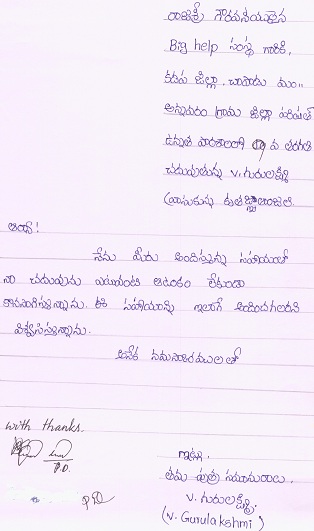 రాజశ్రీ గౌరవనీయులైన
Big help సంస్థ గారికి,
కడప జిల్లా, చాపాడు మం॥
అన్నవరం గ్రామ జిల్లా పరిషత్
ఉన్నత పాఠశాలలో 9 వ తరగతి
చదువుతున్న V. గురులక్ష్మి
వ్రాయునది కృతజ్ఞతాంజలి.
అయ్యా!
నేను మీరు అందిస్తున్న సహాయంతో
నా చదువును ఎటువంటి ఆటంకం లేకుండా
కొనసాగిస్తున్నాను. ఈ సహాయాన్ని ఇలాగే అందించగలరని
విశ్వసిస్తున్నాను.
అనేక నమస్కారములతో
with thanks.
P.D.
ఇట్లు,
తమ పుత్రి సమానురాలు.
V. గురులక్ష్మి.
(V. Gurulakshmi)